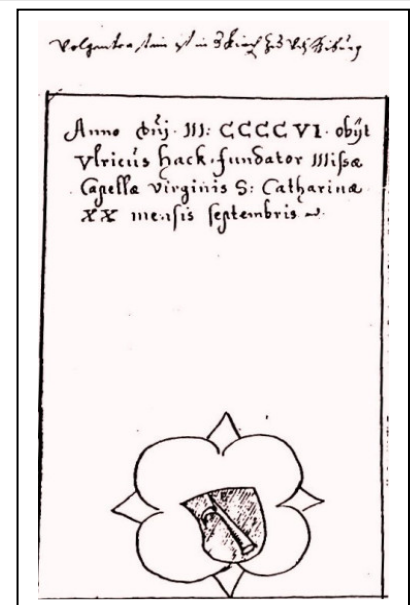 Volgenter stain ist in d kirch zu
Anno Dnj. M: CCCC VI. obijt
Vlricus hack. fundator Missæ
Capellæ virginis S: Catharinæ
XX mensis septembris